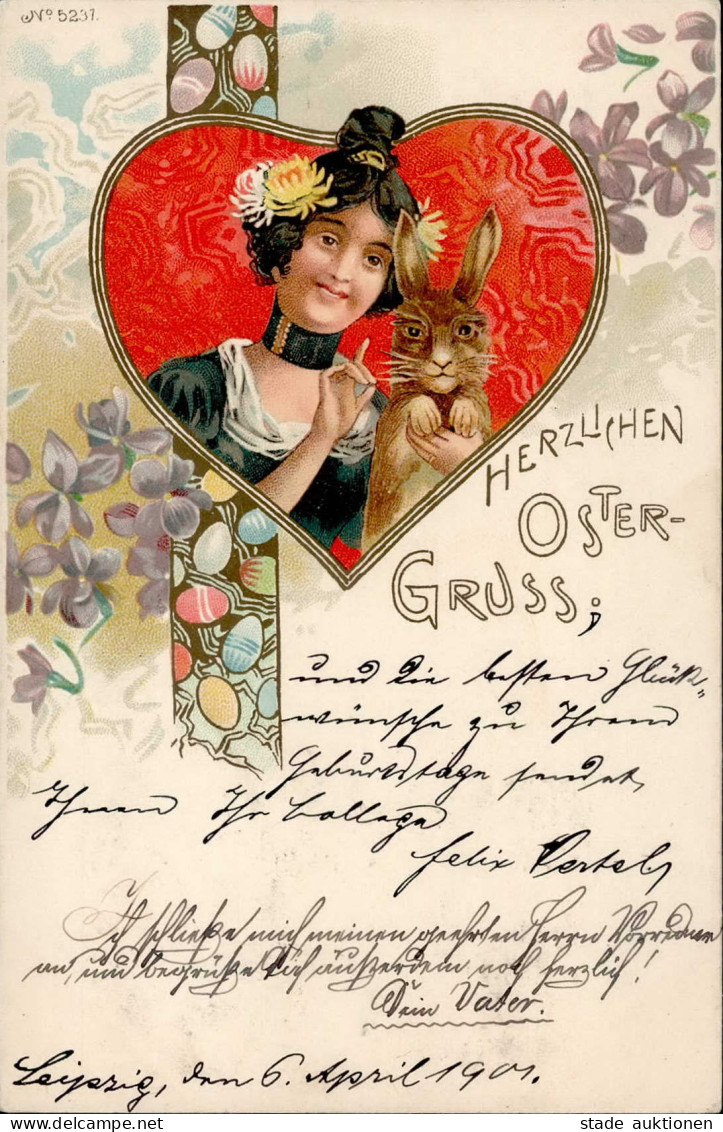 No 5237.
HERZLICHEN
OSTER-
GRUSS;
und die besten Glück-
wünsche zu Ihrem
Geburtstage sendet
Ihnen Ihr Collega
Felix Pertel,
Ich schließe mich meinen geehrten Herrn Vorredner
an, und begrüße Dich außerdem noch herzlich!
Dein Vater.
Leipzig, den 6. April 1901.
stade auktionen